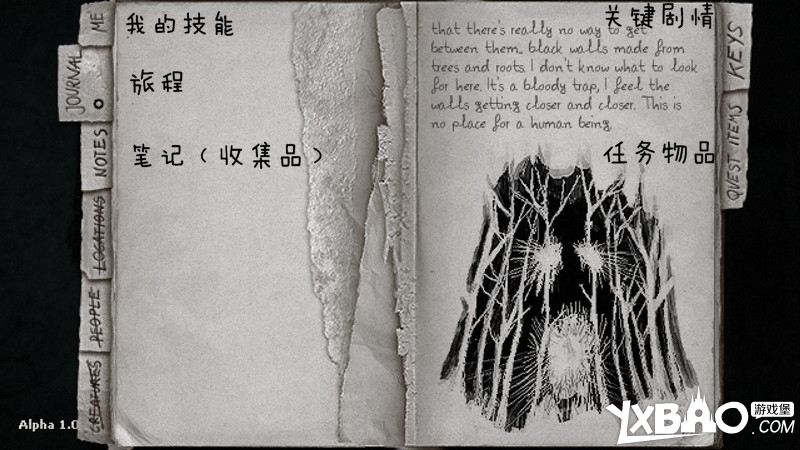 ME
JOURNAL
NOTES
LOCATIONS
PEOPLE
CREATURES
我的技能
旅程
笔记（收集品）
关键剧情
that there's really no way to get
between them... black walls made from
trees and roots. I don't know what to look
for here. It's a bloody trap, I feel the
walls getting closer and closer. This is
no place for a human being.
任务物品
KEYS
QUEST ITEMS
Alpha 1.0
YXBAO
游戏堡
.COM